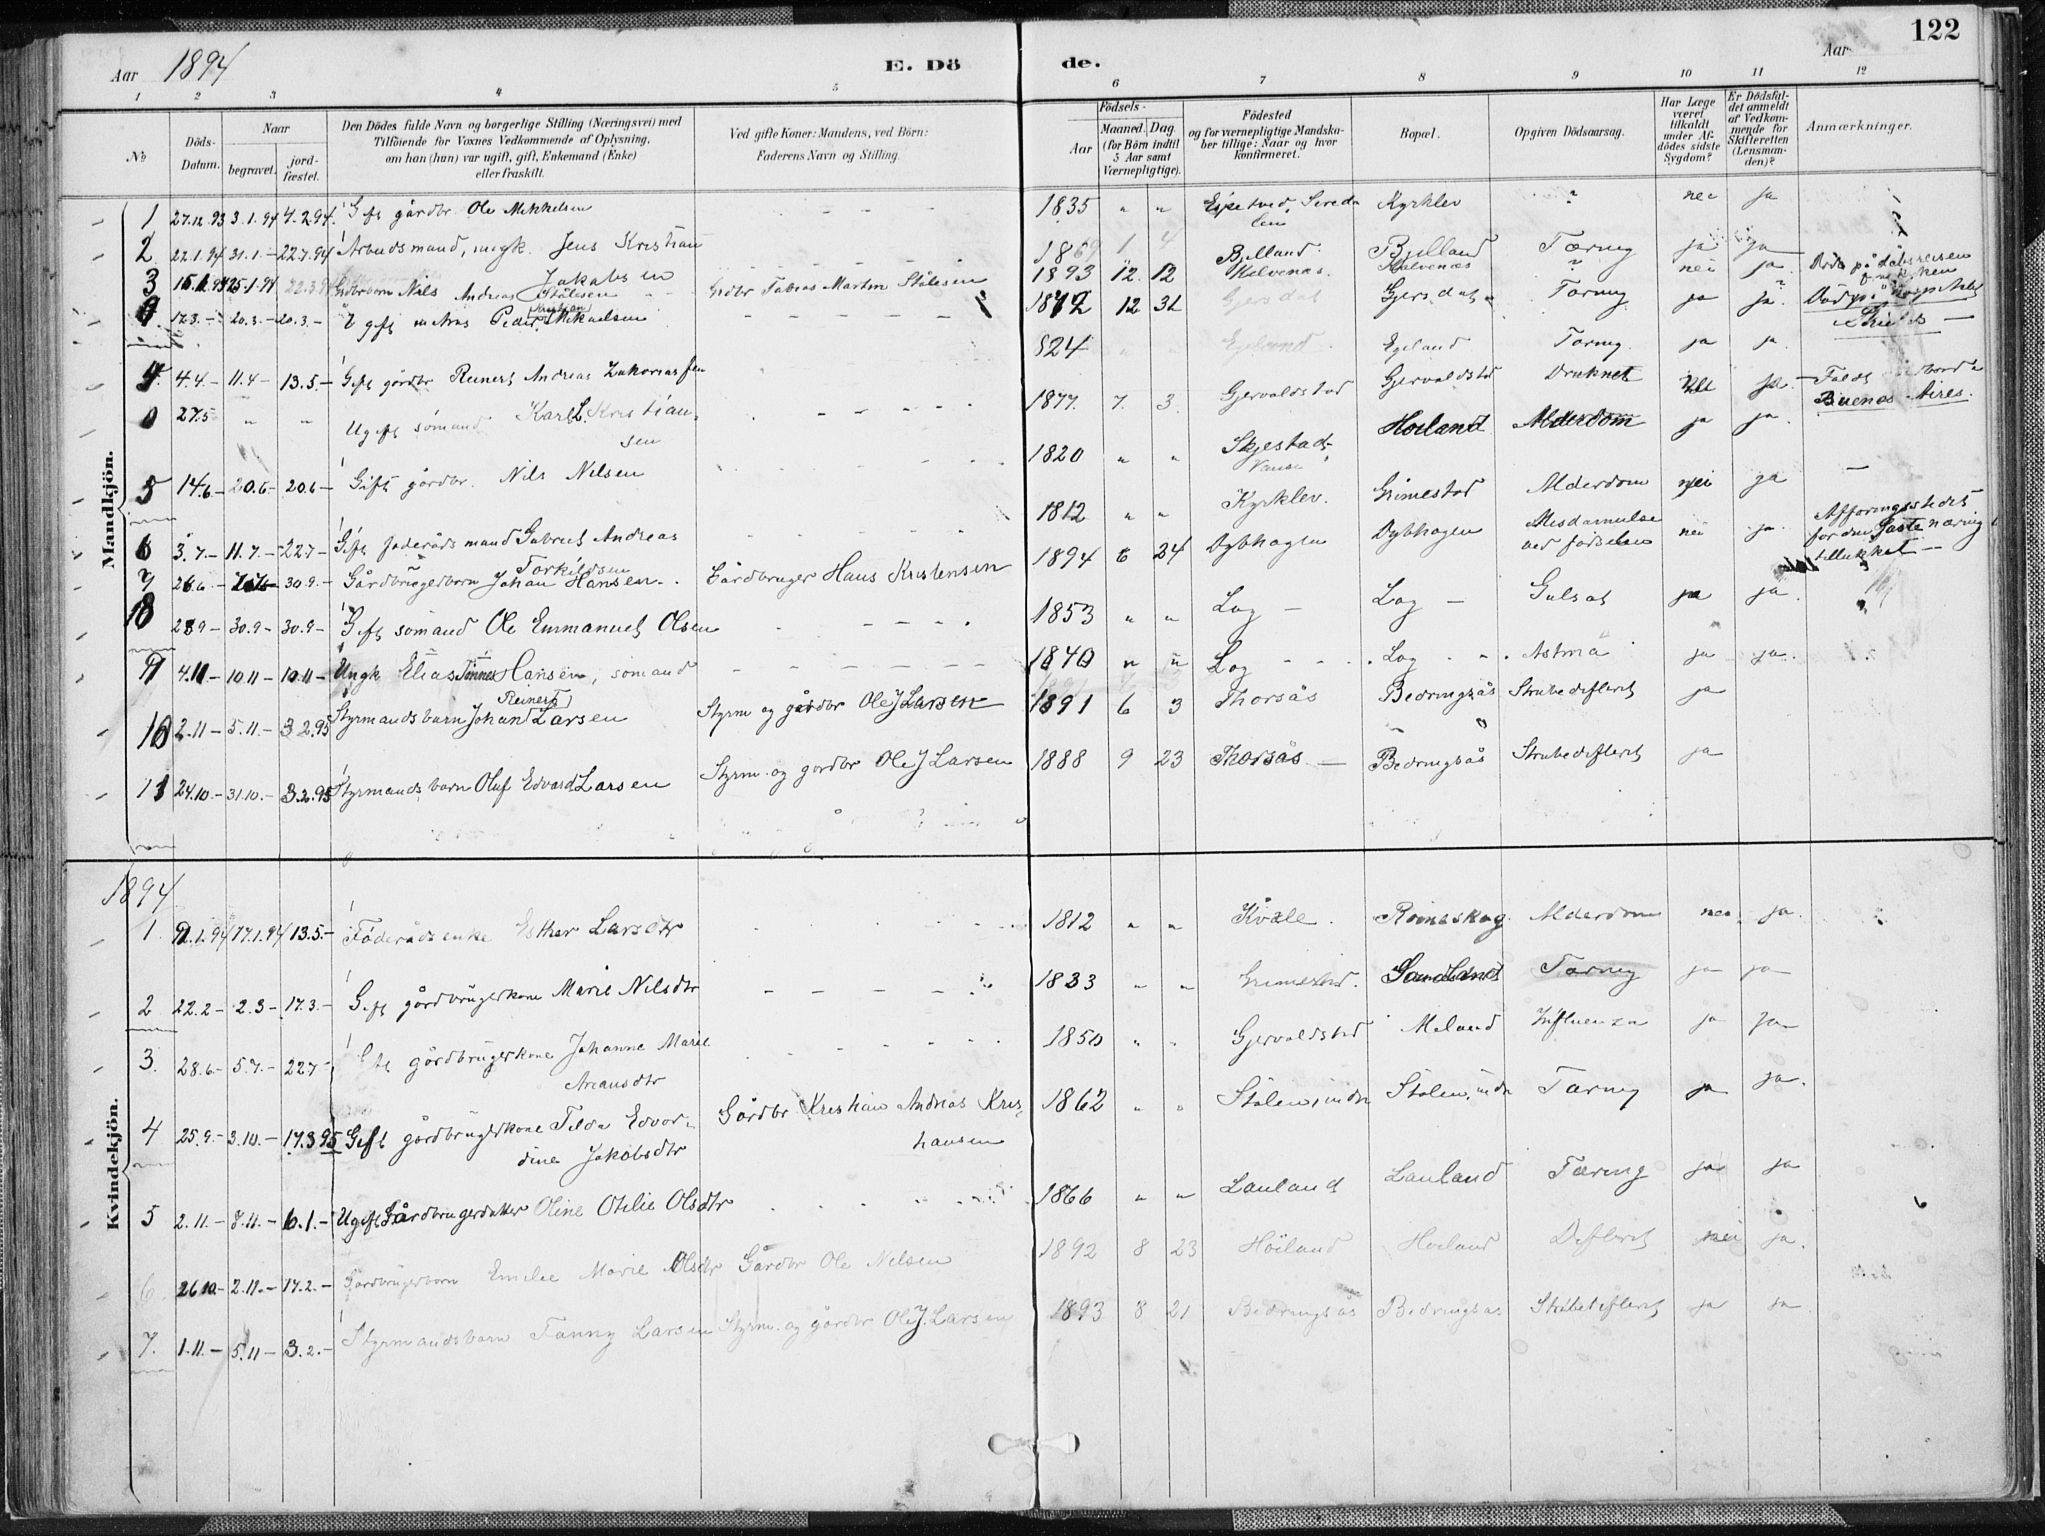 122
Aar 1894
E. Dö
de.
Aar
1 2 3 4 5 6 7 8 9 10 11 12
No
Döds-Datum.
Naar
begravet.
jord-fæstet.
Den Dödes fulde Navn og borgerlige Stilling (Næringsvei) med
Tilföiende for Voxnes Vedkommende af Oplysning,
om han (hun) var ugift, gift, Enkemand (Enke)
eller fraskilt.
Ved gifte Koner: Mandens, ved Börn:
Faderens Navn og Stilling.
Födsels-
Aar
Maaned. Dag
(for Börn indtil
5 Aar samt
Værnepligtige).
Födested
og for værnepligtige Mandska-
ber tillige: Naar og hvor
konfirmeret.
Bopæl.
Opgiven Dödsaarsag.
Har Læge
været
tilkaldt
under Af-
dödes sidste
Sygdom?
Er Dödsfal-
det anmeldt
af Vedkom-
mende for
Skifteretten
(Lensman-
den)?
Anmærkninger.
Mandkjön.
1 27.12.93 3.1.94 4.2.94. Gift gårdbr. Ole Mikkelsen 1835 " " Kyrklev ? nei ja
2 22.1.94 31.1.- 22.7.94 Arbeidsmand, ungk. Jens Kristian
Jakobsen 1869 1 4 Bjelland Bjelland Tæring ja ja
3 25.1.94 Nils Andreas Stålesen Grdbr Tobias Martin Stålesen 1893 12. 12 Kalvenæs. Kalvenæs ? nei ja Døde på dåbsreisen
17.3.- 20.3.- 20.3.- Ugift Peder Mikaelsen 1872 12 31 Gjersdal Gjersdal Tæring ja ja
4 4.4.- 11.4- 13.5.- Gift gårdbr Reinert Andreas Zakariassen 824 Egeland Egeland Tæring. ja ja
0 27.5 " " Ugift sømand Karl L. Kristian-
sen 1877. 7. 3. Gjervoldstad Gjervoldstd Druknet nei ja Faldt
Buenos Aires.
5 14.6.- 20.6- 20.6- Gift gårdbr. Nils Nilsen 1820 " " Skjestad
Vanse Høiland Alderdom ja ja.
6 3.7.- 11.7.- 22.7- Gift føderådsmand Gabriel Andreas
Torkildsen 1812 " " Kyrklev. Grimestad Alderdom nei ja
7 26.6- 30.9.- Gårdbrugerbarn Johan Hansen Gårdbruger Hans Kristensen 1894 6 24 Dybhagen Dybhagen Misdannelse
ved fødselen nei ja Afføringsstedet
for den faste næring
tillukket
8 28.9- 30.9- 30.9- Gift sømand Ole Emmanuel Olsen 1853 " " Log - Log - Gulsot ja ja.
9 4.11- 10.11- 10.11- Ungk Elias Tønnes Hansen, sømand 1840 " " Log Log Astma ja ja.
10 2.11- 5.11.- 3.2.95 Styrmandsbarn Johan Reinert Larsen Styrm og gårdbr Ole J Larsen 1891 6 3 Thorsås Bedringsås Strubedifterit ja
11 24.10.- 31.10.- 3.2.95 Styrmandsbarn Oluf Edvard Larsen Styrm. og gordbr Ole J Larsen 1888 9 23 Thorsås - Bedringsås Strubedifterit ja
1894
Kvindekjön.
1. 9.1.94 17.1.94 13.5.- Føderådsenke Esther Larsdtr 1812 " " Kvåle Romeskog. Alderdom nei ja.
2 22.2- 2.3- 17.3- Gift gårdbrugerkone Marie Nilsdtr 1833 " " Grimestad. Sandland Tæring ja ja
3. 28.6.- 5.7.- 22.7- Gift gårdbrugerkone Johanne Marie
Areansdtr 1850 " " Gjervoldstad Meland Influenza ja ja
4 25.9.- 3.10.- 17.3.95 Gift gårdbrugerkone Tilda Edvar-
dine Jakobsdtr Gårdbr Kristian Andreas Kris-
tiansen 1862 " " Stolen, indre Stolen, indre Tæring ja ja.
5 2.11.- 8.11.- 6.1.- Ugift Gårdbrugerdatter Oline Otilie Olsdtr 1866 " " Lauland Lauland Tæring ja ja
6 26.10.- 2.11.- 17.2.- Gårdbrugerbarn Emilie Marie Olsdtr Gårdbr Ole Nilsen 1892 8 23 Høiland Høiland Difterit nei ja.
7. 1.11.- 5.11- 3.2.- Styrmandsbarn Fanny Larsen Styrm. og gårdbr Ole J. Larsen 1893 8 21 Bedringsås Bedringsås Strubedifterit ja ja